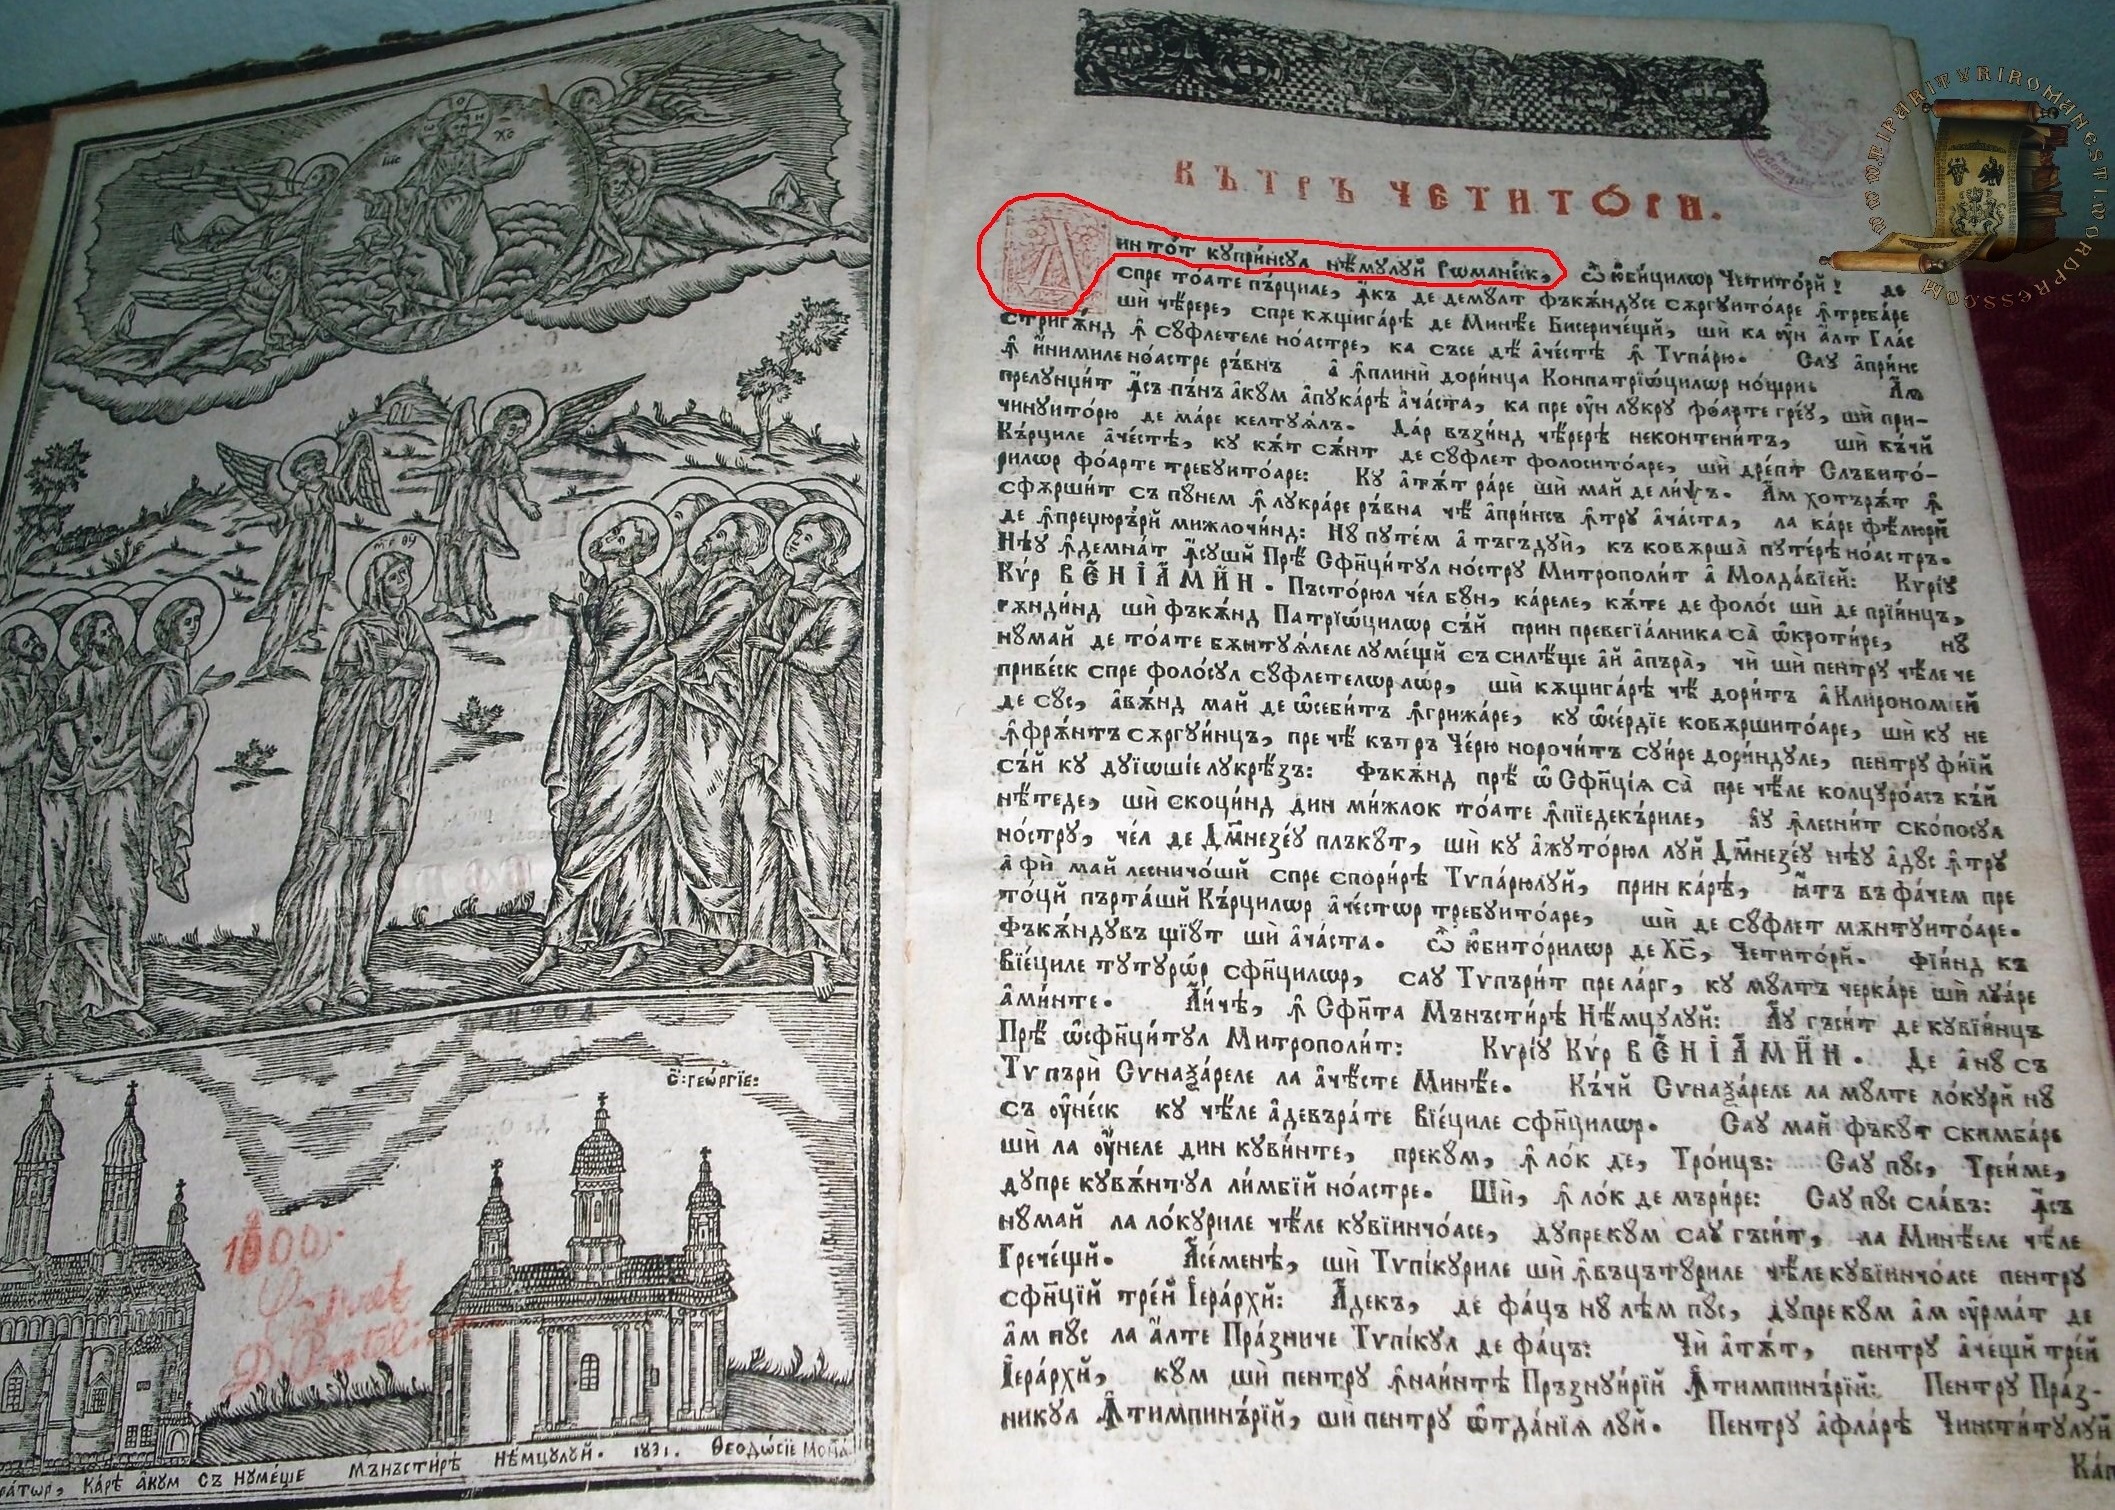 ІИС ХС
МР ѲУ
С҃: ГЕѠ́РГІЕ:
КА́РѢ А҆КУМ СЪ НУМЕ́ЩЕ МЪНЪСТИ́РѢ НѢМЦУЛУЙ. 1831. ѲЕОДО́СІЕ
1800
КЪТРЪ ЧЕТИТѠ́РИ.
Дин то́т купри́нсул нѣ́мулуй Рѡмане́ск, ѽ ю҆би́цилѡр Четито́рй! де
спре то́ате пъ́рциле, ꙟ҆къ де демулт фъкѫ́ндусе сѫргуито́аре ꙟ҆треба́ре
шѝ че́рере, спре кѫщига́рѣ де Минѣ́е Бисериче́щй, шѝ ка оу҆́н а҆́лт Гла́с
стригѫ́нд ꙟ҆ су́флетеле но́астре, ка съсе дѣ́ а҆че́стѣ ꙟ҆ Тѵпа́рю. Сау а҆при́нс
ꙟ҆ и҆́нимиле но́астре ръ́внъ а҆ ꙟ҆плинѝ дори́нца Конпатрїѡ́цилѡр но́щри. А҆м
прелунџи́т ꙟ҆съ пъ́нъ а҆кум а҆пука́рѣ а҆ча́ста, ка пре оу҆́н лукру фо́арте гре́у, шѝ при-
чинуито́рю де ма́ре келтуѧ́лъ. Да́р възи́нд че́рерѣ неконтени́тъ, шѝ къ́чй
Къ́рциле а҆че́стѣ, ку кѫ́т сѫ́нт де су́флет фолосито́аре, шѝ дре́пт Слъвито́-
рилѡр фо́арте требуито́аре: Ку а҆тѫ́т ра́ре шѝ май де ли́ѱъ. А҆м хотърѫ́т ꙟ҆
сфѫрши́т съ пу́нем ꙟ҆ лукра́ре ръ́вна чѣ а҆при́нсъ ꙟ҆тру а҆ча́ста, ла ка́ре фѣ́люрй
де ꙟ҆преџюръ́рй мижлочи́нд: Ну путе́м а҆ тъгъдуѝ, къ ковѫрша̀ путе́рѣ но́астръ.
Нѣу ꙟ҆демна́т ꙟ҆сушй Прѣ Сфн҃ци́тул но́стру Митрополи́т а҆ Молда́вїей: Кѵрїу
Кѵ́р ВЕНІАМИ́Н. Пъсто́рюл че́л бун, ка́реле, кѫ́те де фоло́с шѝ де прїи́нцъ,
рѫнди́нд шѝ фъкѫ́нд Патрїѡ́цилѡр съ́й прин превегїа́лника са̀ ѡ҆кроти́ре, ну
нумай де то́ате бѫнтуѧ́леле луме́щй съ силѣ́ще а҆́й а҆пъра̀, чѝ шѝ пентру чѣ́ле че
приве́ск спре фоло́сул су́флетелѡр лѡ́р, шѝ кѫщига́рѣ чѣ дори́тъ а҆ Клирономїей
де сус, а҆вѫ́нд май де ѡ҆себи́тъ ꙟ҆грижа́ре, ку ѡ҆се́рдїе ковѫршито́аре, шѝ ку не
ꙟ҆фрѫ́нтъ сѫргуи́нцъ, пре чѣ къ́тръ Че́рю норочи́тъ суи́ре дори́ндуле, пентру фи́їй
съ́й ку дуїѡшіе лукрѣ́зъ: Фъкѫ́нд прѣ ѡ҆ Сфн҃цїѧ са̀ пре чѣ́ле колцуро́асъ къ́й
нѣ́теде, шѝ скоци́нд дин ми́жлок то́ате ꙟ҆пїедекъ́риле, а҆у ꙟ҆лесни́т ско́посул
но́стру, че́л де Дм҃незе́у плъкут, шѝ ку а҆жуто́рюл луй Дм҃незе́у нѣу а҆дус ꙟ҆тру
а҆ фѝ май лесничо́шй спре спори́рѣ Тѵпа́рюлуй, прин ка́рѣ, ꙗ҆́тъ въ фа́чем пре
то́цй пърта́шй Къ́рцилѡр а҆че́стѡр требуито́аре, шѝ де су́флет мѫнтуито́аре.
Фъкѫ́ндувъ щїут шѝ а҆ча́ста. Ѽ ю҆бито́рилѡр де ХС҃, Четито́рй. Фїи́нд къ
Вїе́циле тутурѡ́р сфн҃цилѡр, сау Тѵпъри́т пре ла́рг, ку мултъ черка́ре шѝ луа́ре
а҆ми́нте. А҆и́чѣ, ꙟ҆ Сфн҃та Мънъсти́рѣ Нѣ́мцулуй: А҆у гъси́т де кувїи́нцъ
Прѣ ѡ҆сфн҃ци́тул Митрополи́т: Кѵрїу Кѵр ВЕНІАМИ́Н. Де а҆ ну съ
Тѵпърѝ Сѵнаѯа́реле ла а҆чѣ́сте Минѣ́е. Къ́чй Сѵнаѯа́реле ла мулте ло́курй ну
съ оу҆не́ск ку чѣ́ле а҆девъра́те Вїе́циле сфн҃цилѡр. Сау май фъкут скимба́ре
шѝ ла оу҆́неле дин куви́нте, прекум, ꙟ҆ ло́к де, Тро́ицъ: Сау пус, Тре́име,
дупре кувѫ́нтул ли́мбїй но́астре. Шѝ, ꙟ҆ ло́к де мъри́ре: Сау пус сла́въ: ꙟ҆съ
нумай ла ло́куриле чѣ́ле кувїинчо́асе, дупрекум сау гъси́т, ла Минѣ́еле чѣ́ле
Грече́щй. А҆се́менѣ, шѝ Тѵпі́куриле шѝ ꙟ҆въцъту́риле чѣ́ле кувїинчо́асе пентру
сфн҃цїй тре́й Іера́рхй: А҆декъ, де фа́цъ ну лѣм пус, дупрекум а҆м оу҆рма́т де
а҆м пус ла а҆́лте Пра́зниче Тѵпі́кул де фа́цъ: Чѝ а҆тѫ́т, пентру а҆че́щй тре́й
Іера́рхй, кум шѝ пентру ꙟ҆наи́нтѣ Пръзнуи́рїй ꙟ҆тимпинъ́рїй: Пентру Пра́з-
никул ꙟ҆тимпинъ́рїй, шѝ пентру ѡ҆тда́нїѧ луй. Пентру а҆фла́рѣ Чинсти́тулуй
Ка́п
WWW.TIPARITURIROMANESTI.WORDPRESS.COM